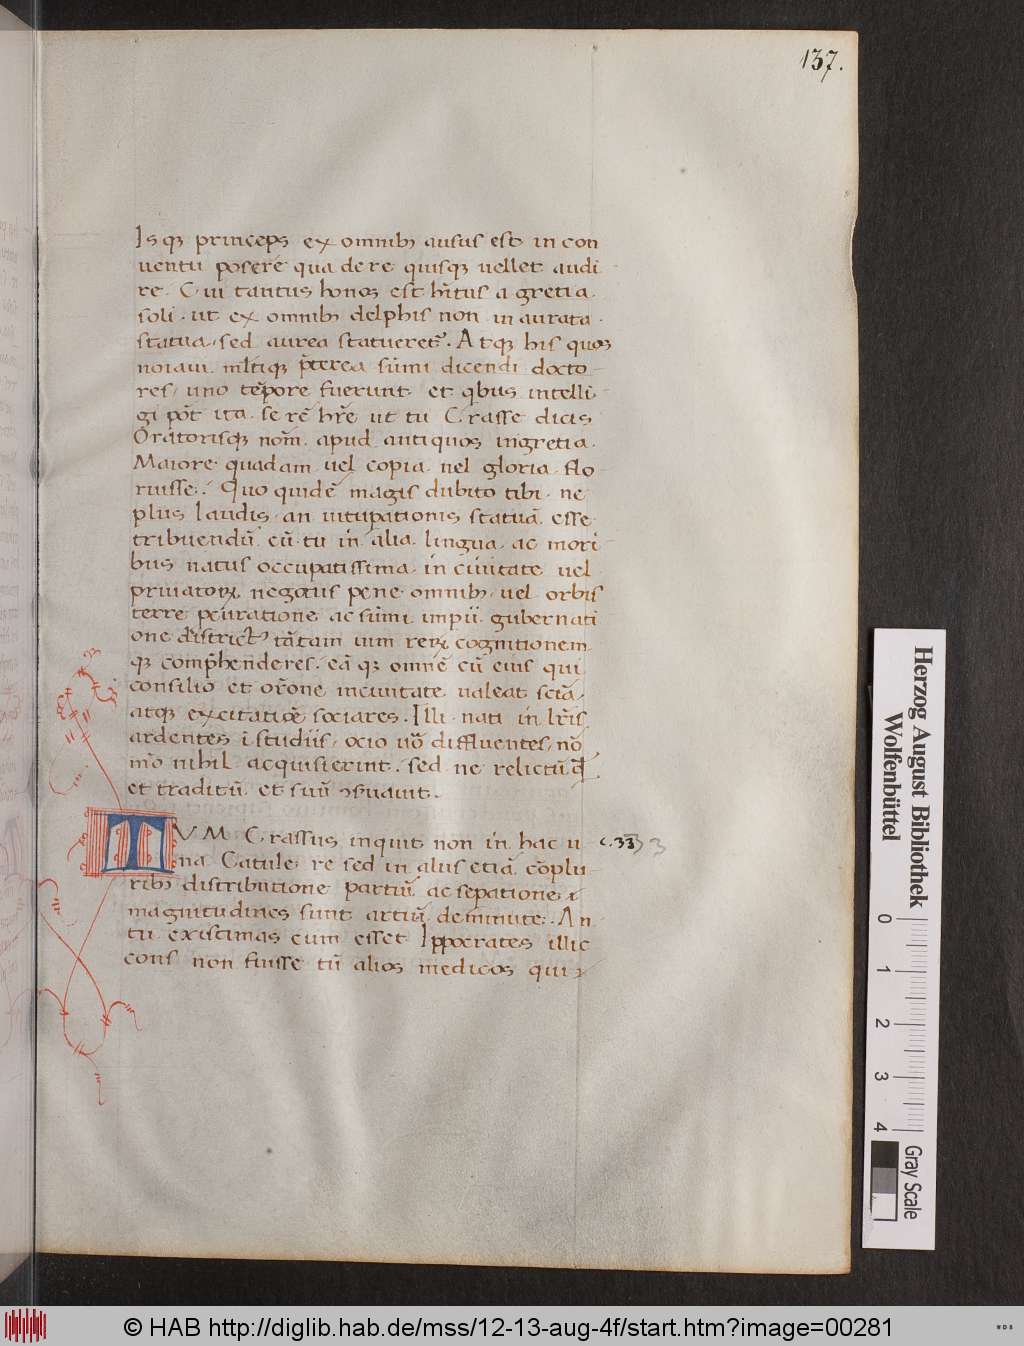 137.
Isqꝫ princeps ex omnib; ausus est in con
uentu poserē qua de re quisqꝫ uellet audi
re. Cui tantus honos est hītus a gretia.
soli. ut ex omnib; delphis non inaurata.
statua. sed aurea statueretᷣ. Atqꝫ his quos
noiaui. mltiqꝫ p̄terea sūmi dicendi docto
res, uno tēpore fuerunt et qbus intelli
gi pōt ita. se rē hr̄e ut tu Crasse dicis
Oratorisqꝫ nom̄. apud antiquos in gretia.
Maiore quadam uel copia. uel gloria. flo
ruisse. Quo quidē magis dubito tibi. ne
plus laudis. an uitupationis statuā. esse
tribuendū. cū. tu in alia. lingua. ac mori
bus natus occupatissima. in ciuitate uel
priuatoꝝ negotiis pene omnib; uel orbis
terre pcuratione ac sūmi imperii gubernati
one districtꝰ tātam uim rerꝝ cognitionem
qꝫ comp̄henderes. eā qꝫ omnē cū eius qui
consilio et or̄one inciuitate ualeat sciā.
atqꝫ excitatiōe sociares. Illi nati in lr̄is.
ardentes ī studiis, ocio uō diffluentes, nō
mō nihil acquisierint. sed ne relictū q̄
et traditū et suū ꝯseruauit.
TVM Crassus inquit non in hac u c.33) 3
na Catule re sed in aliis etiā cōplu
rib; distributione partiū ac sepatione
magnitudines sunt artiū deminute. An
tu existimas cum esset Ippocrates ille
cous non fuisse tū alios medicos qui
Herzog August Bibliothek
Wolfenbüttel
0 1 2 3 4
Gray Scale
© HAB http://diglib.hab.de/mss/12-13-aug-4f/start.htm?image=00281